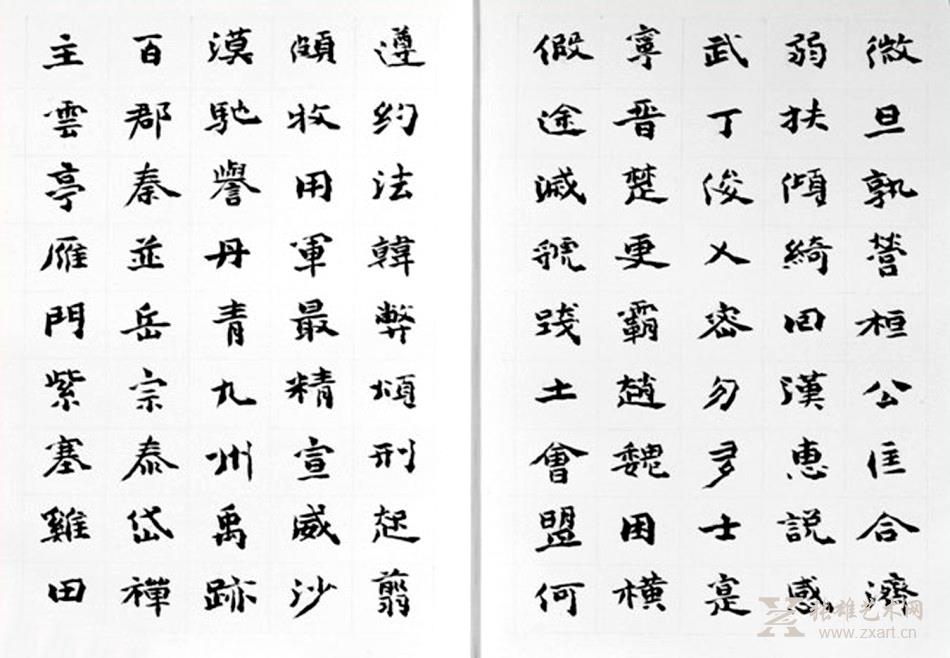 微旦孰營桓公匡合濟
弱扶傾綺回漢惠説感
武丁俊乂密勿多士寔
寧晋楚更霸趙魏困横
假途滅虢踐土會盟何
遵約法韓弊煩刑起翦
頗牧用軍最精宣威沙
漠馳譽丹青九州禹跡
百郡秦並岳宗泰岱禪
主雲亭雁門紫塞雞田
张雄艺术网
www.zxart.cn